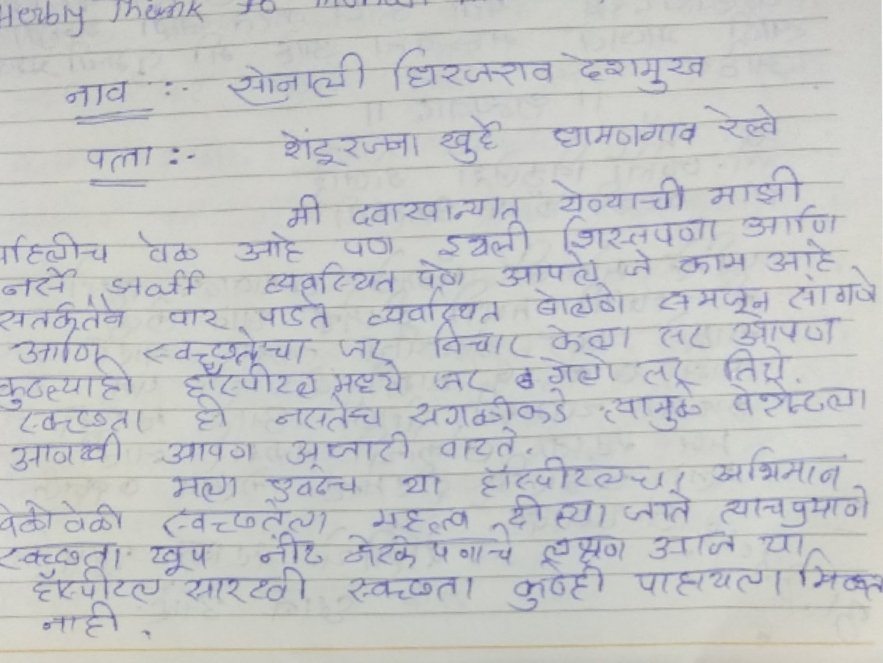 Herbly Thank to
नाव :- सोनाली धिरजराव देशमुख
पत्ता :- शेंदूरजना खुर्द धामणगाव रेल्वे
मी दवाखान्यात येण्याची माझी
पहिलीच वेळ आहे पण इथली शिस्तपणा आणि
नर्स व्यवस्थित पणे आपले जे काम आहे
सतर्कतेने पार पाडते व्यवस्थित बोलणे समजून सांगणे
आणि स्वच्छतेचा जर विचार केला तर आपण
कुठल्याही हॉस्पीटल मध्ये जर गेलो तर तिथे
स्वच्छता ही नसतेच सगळीकडे त्यामुळे पेशंटला
आणखी आपण आजारी वाटते.
मला एवढेच या हॉस्पीटलचा अभिमान
वेळोवेळी स्वच्छतेला महत्व दील्या जाते त्याचप्रमाणे
स्वच्छता खूप नीट नेटके पणाचे लक्षण आज या
हॉस्पीटल सारखी स्वच्छता कुठेही पाहायला मिळत
नाही.